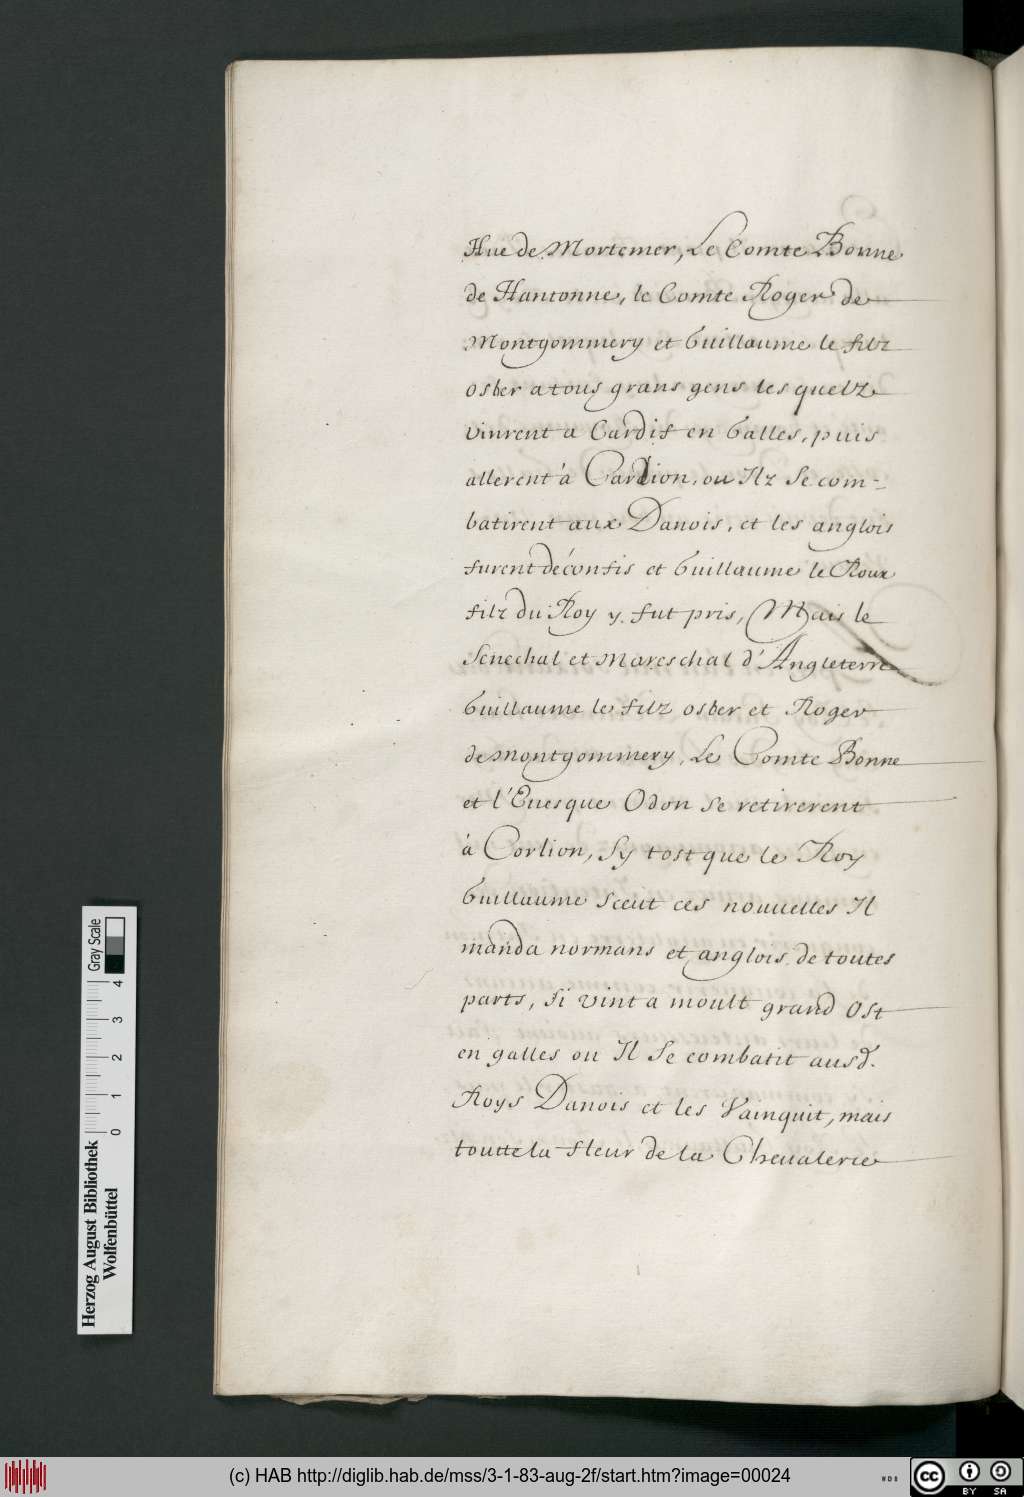 Hue de Mortemer, Le Comte Bonne
de Hantonne, le Comte Roger de
Montgommery et Guillaume le filz
osber a tous grans gens les quelz
vinrent a Cardif en Galles, puis
allerent à Carlion, ou Ilz se com-
batirent aux Danois, et les anglois
furent déconfis et Guillaume le Roux
filz du Roy y fut pris, Mais le
Senechal et Mareschal d'Angleterre
Guillaume le filz osber et Roger
de Montgommery, Le Comte Bonne
et l'Euesque Odon se retirerent
à Corlion, Sy tost que le Roy
Guillaume sceut ces nouuelles Il
manda normans et anglois de toutes
parts, si vint a moult grand Ost
en galles ou Il Se combatit ausd.
Roys Danois et les Vainquit, mais
toutte la fleur de la Cheualerie
Gray Scale
0 1 2 3 4
Herzog August Bibliothek
Wolfenbüttel
(c) HAB http://diglib.hab.de/mss/3-1-83-aug-2f/start.htm?image=00024
WDB
cc BY SA